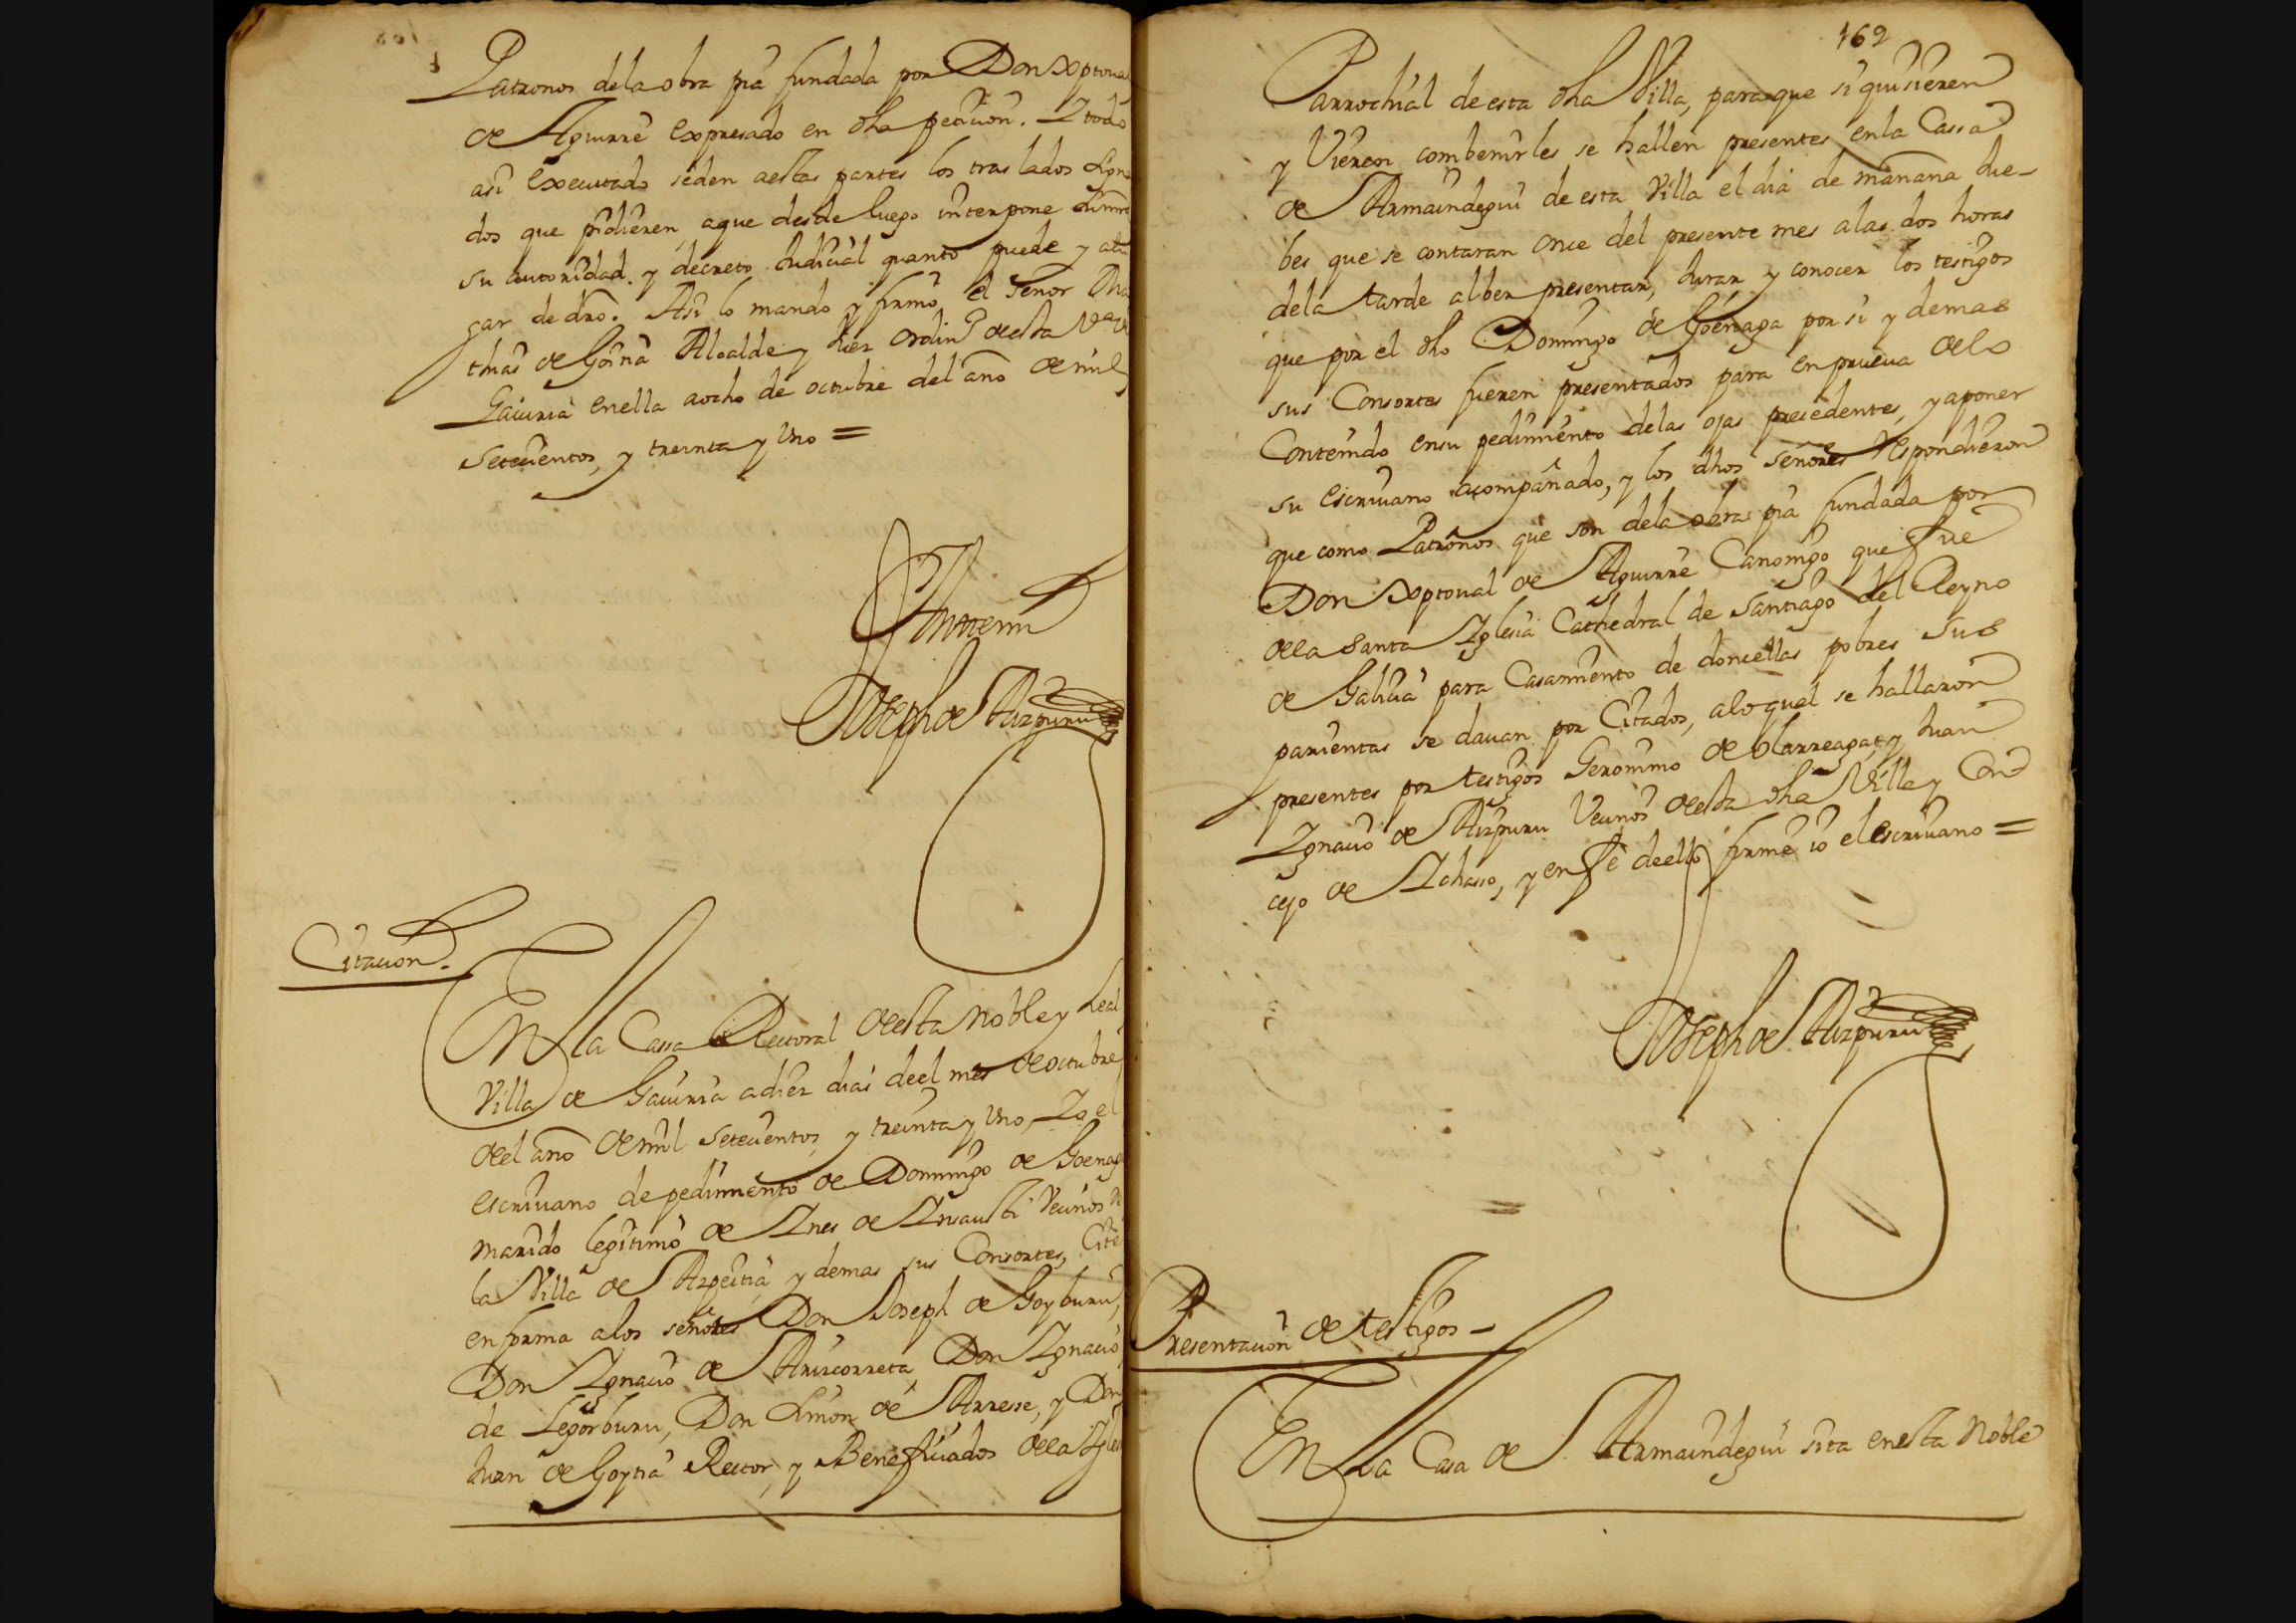 Patronos dela obra pia fundada por Don Xptoual
de Aguirre expresado en dha peticion. Y todo
asi executado seden aestas partes los traslados signa
dos que pidieren, aque desde luego interpone su md
su autoridad y decreto Judicial quanto puede y alu
gar de dro. Asi lo mando y firmo el señor Ma
thias de Goina Alcalde y Juez ordino deesta Va de
Gauiria enella aocho de octubre del año de mil
setecientos, y treinta y Vno =
Antemi
Joseph de Aizpuru
Citacion.
En la Cassa Rectoral deesta Noble y Leal
Villa de Gauiria adiez dias deel mes de octubre
deel año de mil setecientos, y treinta y Vno, Yo el
escriuano de pedimiento de Domingo de Goenaga
marido legitimo de Ines de Insausti Vecinos de
la Villa de Azpeitia, y demas sus Consortes, Cite
enforma alos señores Don Joseph de Goyburu,
Don Ignacio de Ariscorreta, Don Ignacio
de Legorburu, Don Simon de Arrese, y Don
Juan de Goytia Rector, y Beneficiados dela Igle
162
Parrochial de esta dha Villa, paraque si quisieren
y Vieren combenirles se hallen presentes enla Cassa
de Armaindegui de esta Villa el dia de mañana Jue-
bes que se contaran once del presente mes alas dos horas
dela tarde alber presentar, Jurar y conocer los testigos
que por el dho Domingo de Goenaga por si y demas
sus Consortes fueren presentados para en prueua delo
Contenido ensu pedimiento delas ojas presedentes, y aponer
su escriuano acompañado, y los dhos señores Respondieron
que como Patronos que son dela obra pia fundada por
Don Xptoual de Aguirre Canonigo que fue
dela santa Iglesia Cathedral de Santiago del Reyno
de Galicia para Casamiento de doncellas pobres sus
parientas se dauan por Citados, aloqual se hallaron
presentes por testigos Geronimo de olarreaga, y Juan
Ignacio de Aizpuru Vecinos deesta dha Villa y Con
cejo de Ichasso, y en fe deello firme io el escriuano =
Joseph de Aizpuru
Presentacion de testigos -
En La Casa de Armaindegui sita enesta Noble